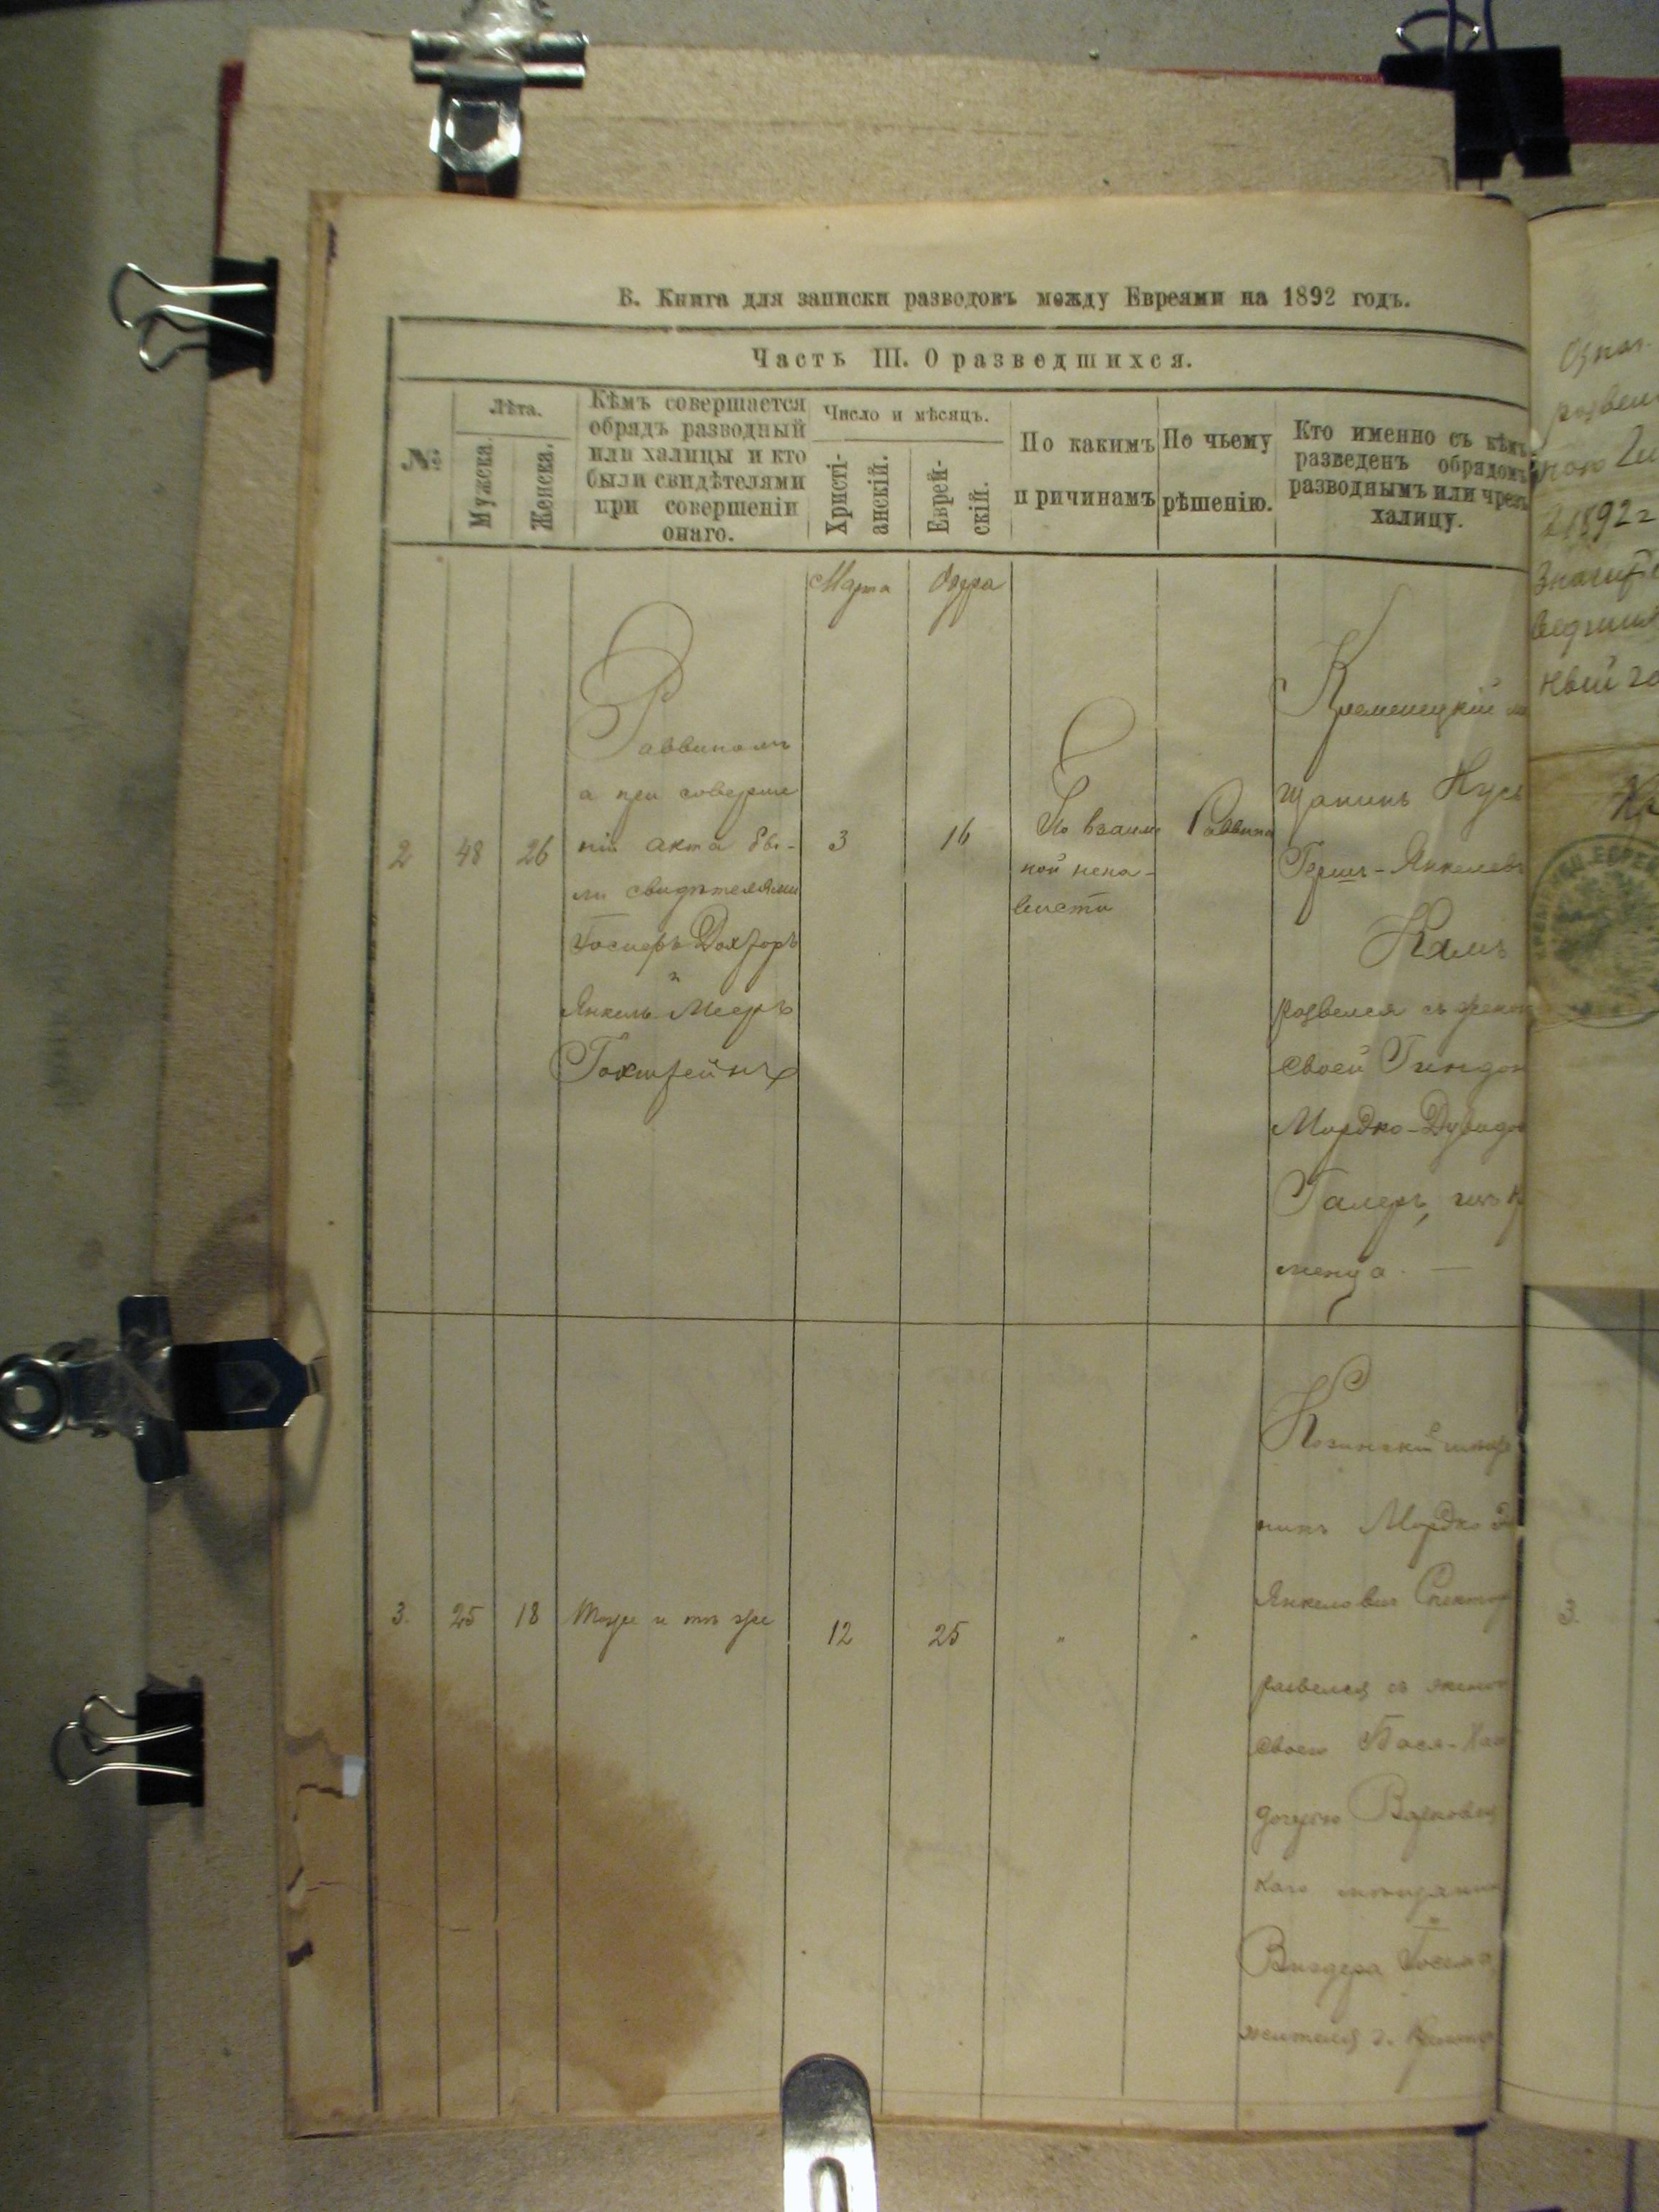 В. Книга для записки разводовъ между Евреями на 1892 годъ.
Часть III. О разведшихся.
№
Лѣта.
Мужска
Женска.
Кѣмъ совершается
обрядъ разводный
или халицы и кто
были свидѣтелями
при совершеніи
онаго.
Число и мѣсяцъ.
Христі-
анскій.
Еврей-
скій.
По какимъ
причинамъ
По чьему
рѣшенію.
Кто именно съ кѣмъ
разведенъ обрядомъ
разводнымъ или чрезъ
халицу.
Марта
Адра
2
48
26
Раввиномъ
а при соверше
ніи акта бы-
ли свидѣтелями
Іосифъ Дохторъ
и
Янкель Мееръ
3
16
По взаим
ной нена-
висти
Раввина
Кременецкій
щанинъ Нусъ
Гершъ-Янкелев
Камъ
развелся съ женою
своей Гиндою
Мордко-Дувидов
Галеръ, изъ К
менца. —
3.
25
18
Тоже и тѣ же
12
25
"
"
Козинскій мѣща
нинъ Мордко
Янкелевич Спектор
развелся съ женою
своею Бася-Хая
дочерью Варковиц
каго мѣщанина
жителя г. Кремен
1892 г
ный го